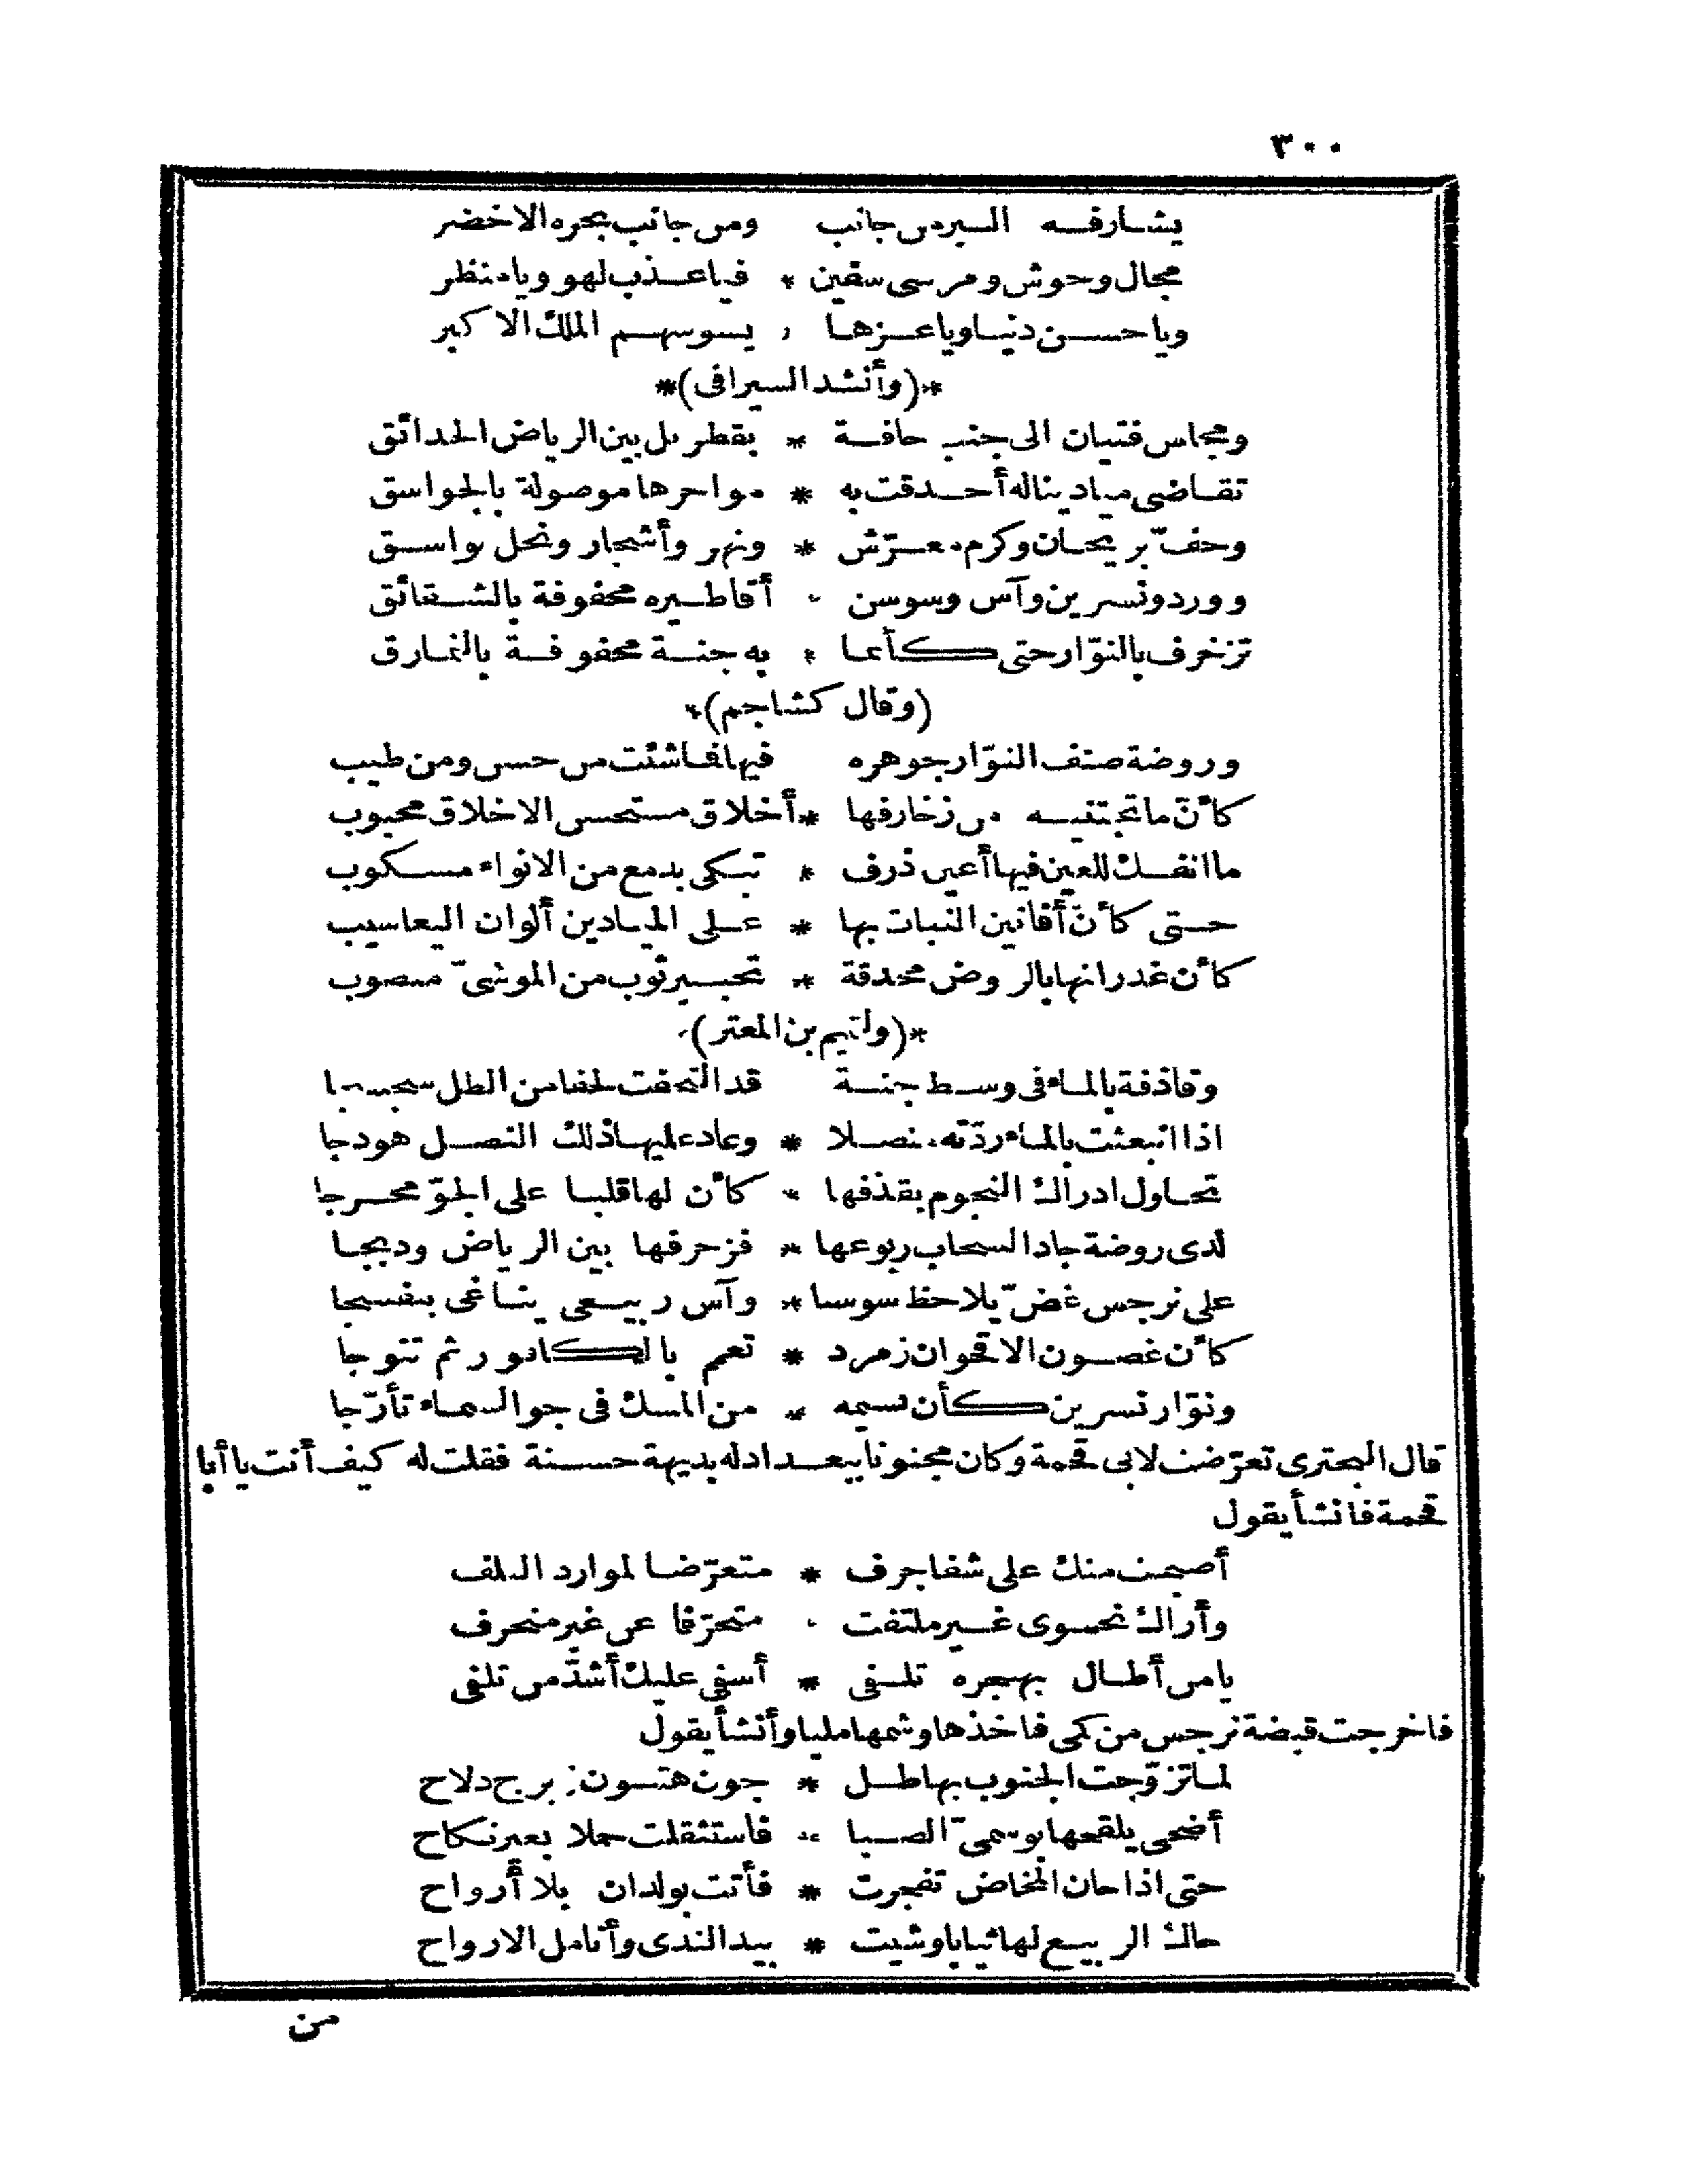 ٣٠٠
يشارفه البر من جانب ومن جانب بحره الاخضر
مجال وحوش ومرسى سفين * فيا عذب لهو ويا منظر
ويا حسن دنيا ويا عزها * يسوسهم الملك الاكبر
*(وأنشد السيرافى)*
ومجلس فتيان الى جنب حافة * بقطربل بين الرياض الحدائق
تقاضى ميادينا له أحدقت به * مواخرها موصولة بالجواسق
وحف بريحان وكرم معرّش * ونهر وأشجار ونخل بواسق
وورد ونسرين وآس وسوسن * أقاطيره محفوفة بالشقائق
تزخرف بالنوّار حتى كأنما * به جنة محفوفة بالنمارق
(وقال كشاجم)*
وروضة صنف النوّار جوهره فيها فما شئت من حسن ومن طيب
كأنّ ما تجتنيه من زخارفها * أخلاق مستحسن الاخلاق محبوب
ما انفك للعين فيها أعين ذرف * تبكى بدمع من الانواء مسكوب
حتى كأنّ أفانين النبات بها * على الميادين ألوان اليعاسيب
كأن غدرانها بالروض محدقة * تحبير ثوب من الموشىّ منصوب
*(ولتيم بن المعتز)*
وقاذفة بالماء فى وسط جنة قد التحفت لحفا من الطل سجسجا
اذا انبعثت بالماء ردّته منصلا * وعاد عليها ذلك النصل هودجا
تحاول ادراك النجوم بقذفها * كأن لها قلبا على الجوّ محرجا
لدى روضة جاد السحاب ربوعها * فزخرفها بين الرياض ودبجا
على نرجس غضّ يلاحظ سوسنا * وآس ربيعى يناغى بنفسجا
كأن غصون الاقحوان زمرد * تعمم بالكافور ثم تتوجا
ونوّار نسرين كأن نسيمه * من المسك فى جو السماء تأرّجا
قال البحترى تعرّضت لابى قحمة وكان مجنونا ببغداد له بديهة حسنة فقلت له كيف أنت يا أبا
قحمة فانشأ يقول
أصبحت منك على شفا جرف * متعرّضا لموارد التلف
وأراك نحوى غير ملتفت * متحرّفا عن غير منحرف
يا من أطال بهجره تلفى * أسفى عليك أشدّ من تلفى
فاخرجت قبضة نرجس من كمى فاخذها وشمها مليا وأنشأ يقول
لما تزوّجت الجنوب بهاطل * جون هتون زبرج دلاح
أضحى يلقحها بوسمىّ الصبا * فاستثقلت حملا بغير نكاح
حتى اذا حان المخاض تفجرت * فأتت بولدان بلا أرواح
حاك الربيع لها ثيابا وشيت * بيد الندى وأنامل الارواح
من